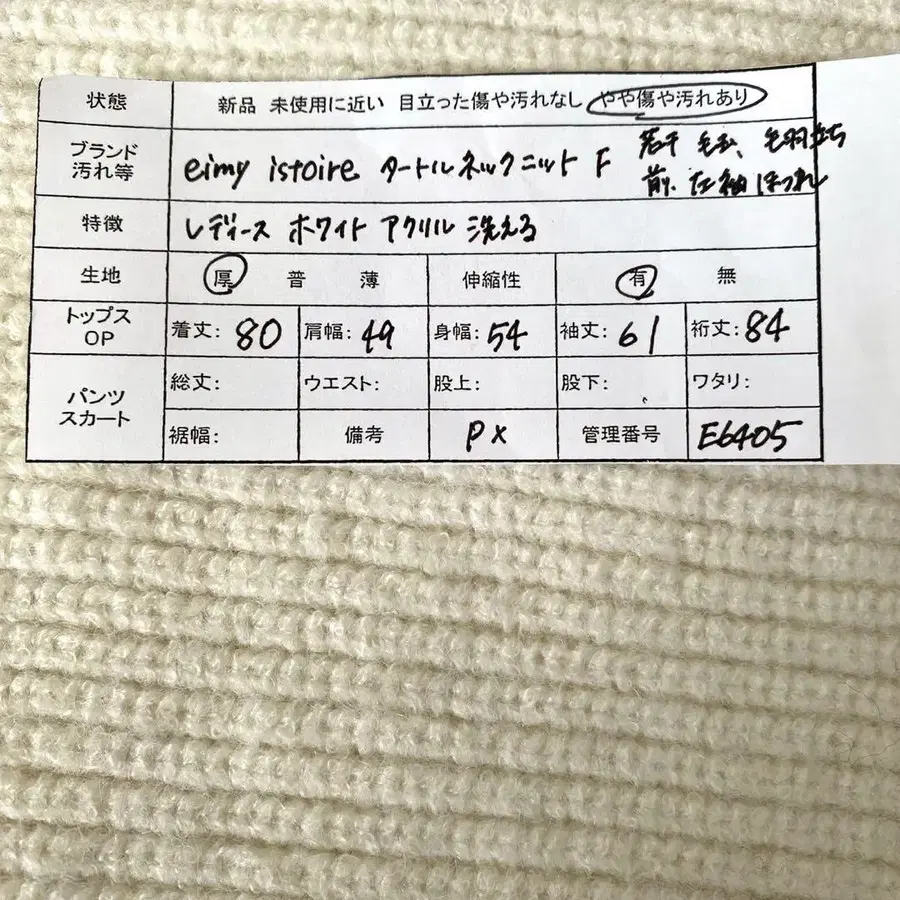 状態 新品 未使用に近い 目立った傷や汚れなし やや傷や汚れあり
ブランド
汚れ等
eimy istoire タートルネックニット F
若干 毛玉、毛羽立ち
前、左袖 ほつれ
特徴 レディース ホワイト アクリル 洗える
生地 厚 普 薄 伸縮性 有 無
トップス
OP
着丈: 80 肩幅: 49 身幅: 54 袖丈: 61 裄丈: 84
パンツ
スカート
総丈: ウエスト: 股上: 股下: ワタリ:
裾幅: 備考 PX 管理番号 E6405